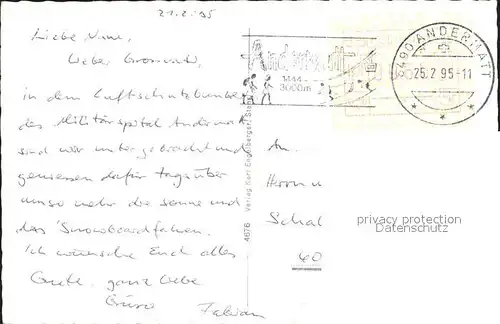 21.2.95
Liebe Mama,
Lieber Grossvati,
in dem Luftschutzbunker
des Militärspital Andermatt
sind wir untergebracht und
geniessen dafür tagsüber
umso mehr die Sonne und
das Snowboardfahren.
Ich wünsche Euch alles
Gute. ganz liebe
Grüsse Fabian
4676 Verlag Karl Engelberger,
Andermatt
1444-
3000m
6490 ANDERMATT
25.2.95-11
An
Herrn u
Schal
60
privacy protection
Datenschutz